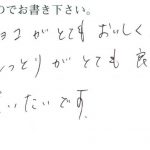 のでお書き下さい。
ョコがとてもおいしく
っとりがとても良
いたいです。